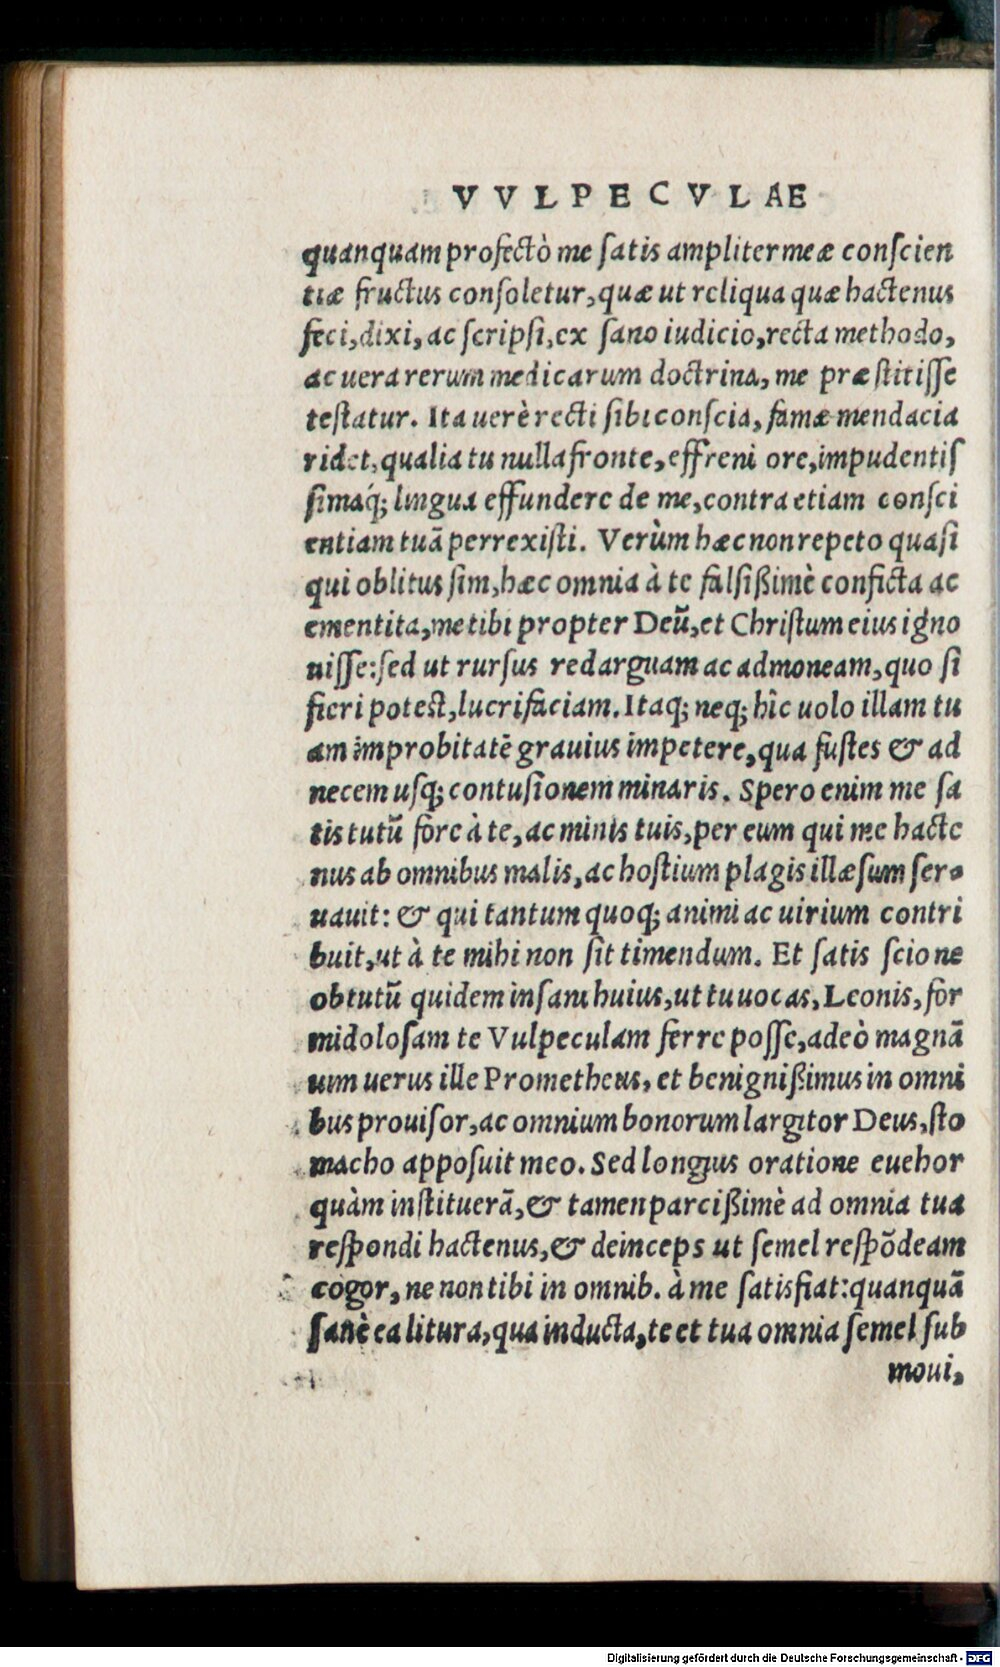 VVLPECVLAE
quanquam profectò me ſatis ampliter meæ conſcien
tiæ fructus conſoletur, quæ ut reliqua quæ hactenus
feci, dixi, ac ſcripſi, ex ſano iudicio, recta methodo,
ac uera rerum medicarum doctrina, me præſtitiſſe
teſtatur. Ita uerè recti ſibi conſcia, famæ mendacia
ridet, qualia tu nulla fronte, effreni ore, impudentiſ
ſimaq́; lingua effundere de me, contra etiam conſci
entiam tuã perrexiſti. Verùm hæc non repeto quaſi
qui oblitus ſim, hæc omnia à te falſißimè conficta ac
ementita, me tibi propter Deũ, et Chriſtum eius igno
niſſe: ſed ut rurſus redarguam ac admoneam, quo ſi
fieri poteſt, lucrifaciam. Itaq; neq; hîc uolo illam tu
am improbitatẽ grauius impetere, qua fuſtes & ad
necem uſq; contuſionem minaris. Spero enim me ſa
tis tutũ fore à te, ac minis tuis, per eum qui me hacte
nus ab omnibus malis, ac hoſtium plagis illæſum ſer-
uauit: & qui tantum quoq; animi ac uirium contri
buit, ut à te mihi non ſit timendum. Et ſatis ſcio ne
obtutũ quidem inſani huius, ut tu uocas, Leonis, for
midoloſam te Vulpeculam ferre poſſe, adeò magnã
uim uerus ille Prometheus, et benignißimus in omni
bus prouiſor, ac omnium bonorum largitor Deus, ſto
macho appoſuit meo. Sed longius oratione euehor
quàm inſtituerã, & tamen parcißimè ad omnia tua
reſpondi hactenus, & deinceps ut ſemel reſpõdeam
cogor, ne non tibi in omnib. à me ſatisfiat: quanquã
ſanè ea litura, qua inducta, te et tua omnia ſemel ſub
moui,
Digitalisierung gefördert durch die Deutsche Forschungsgemeinschaft - DFG